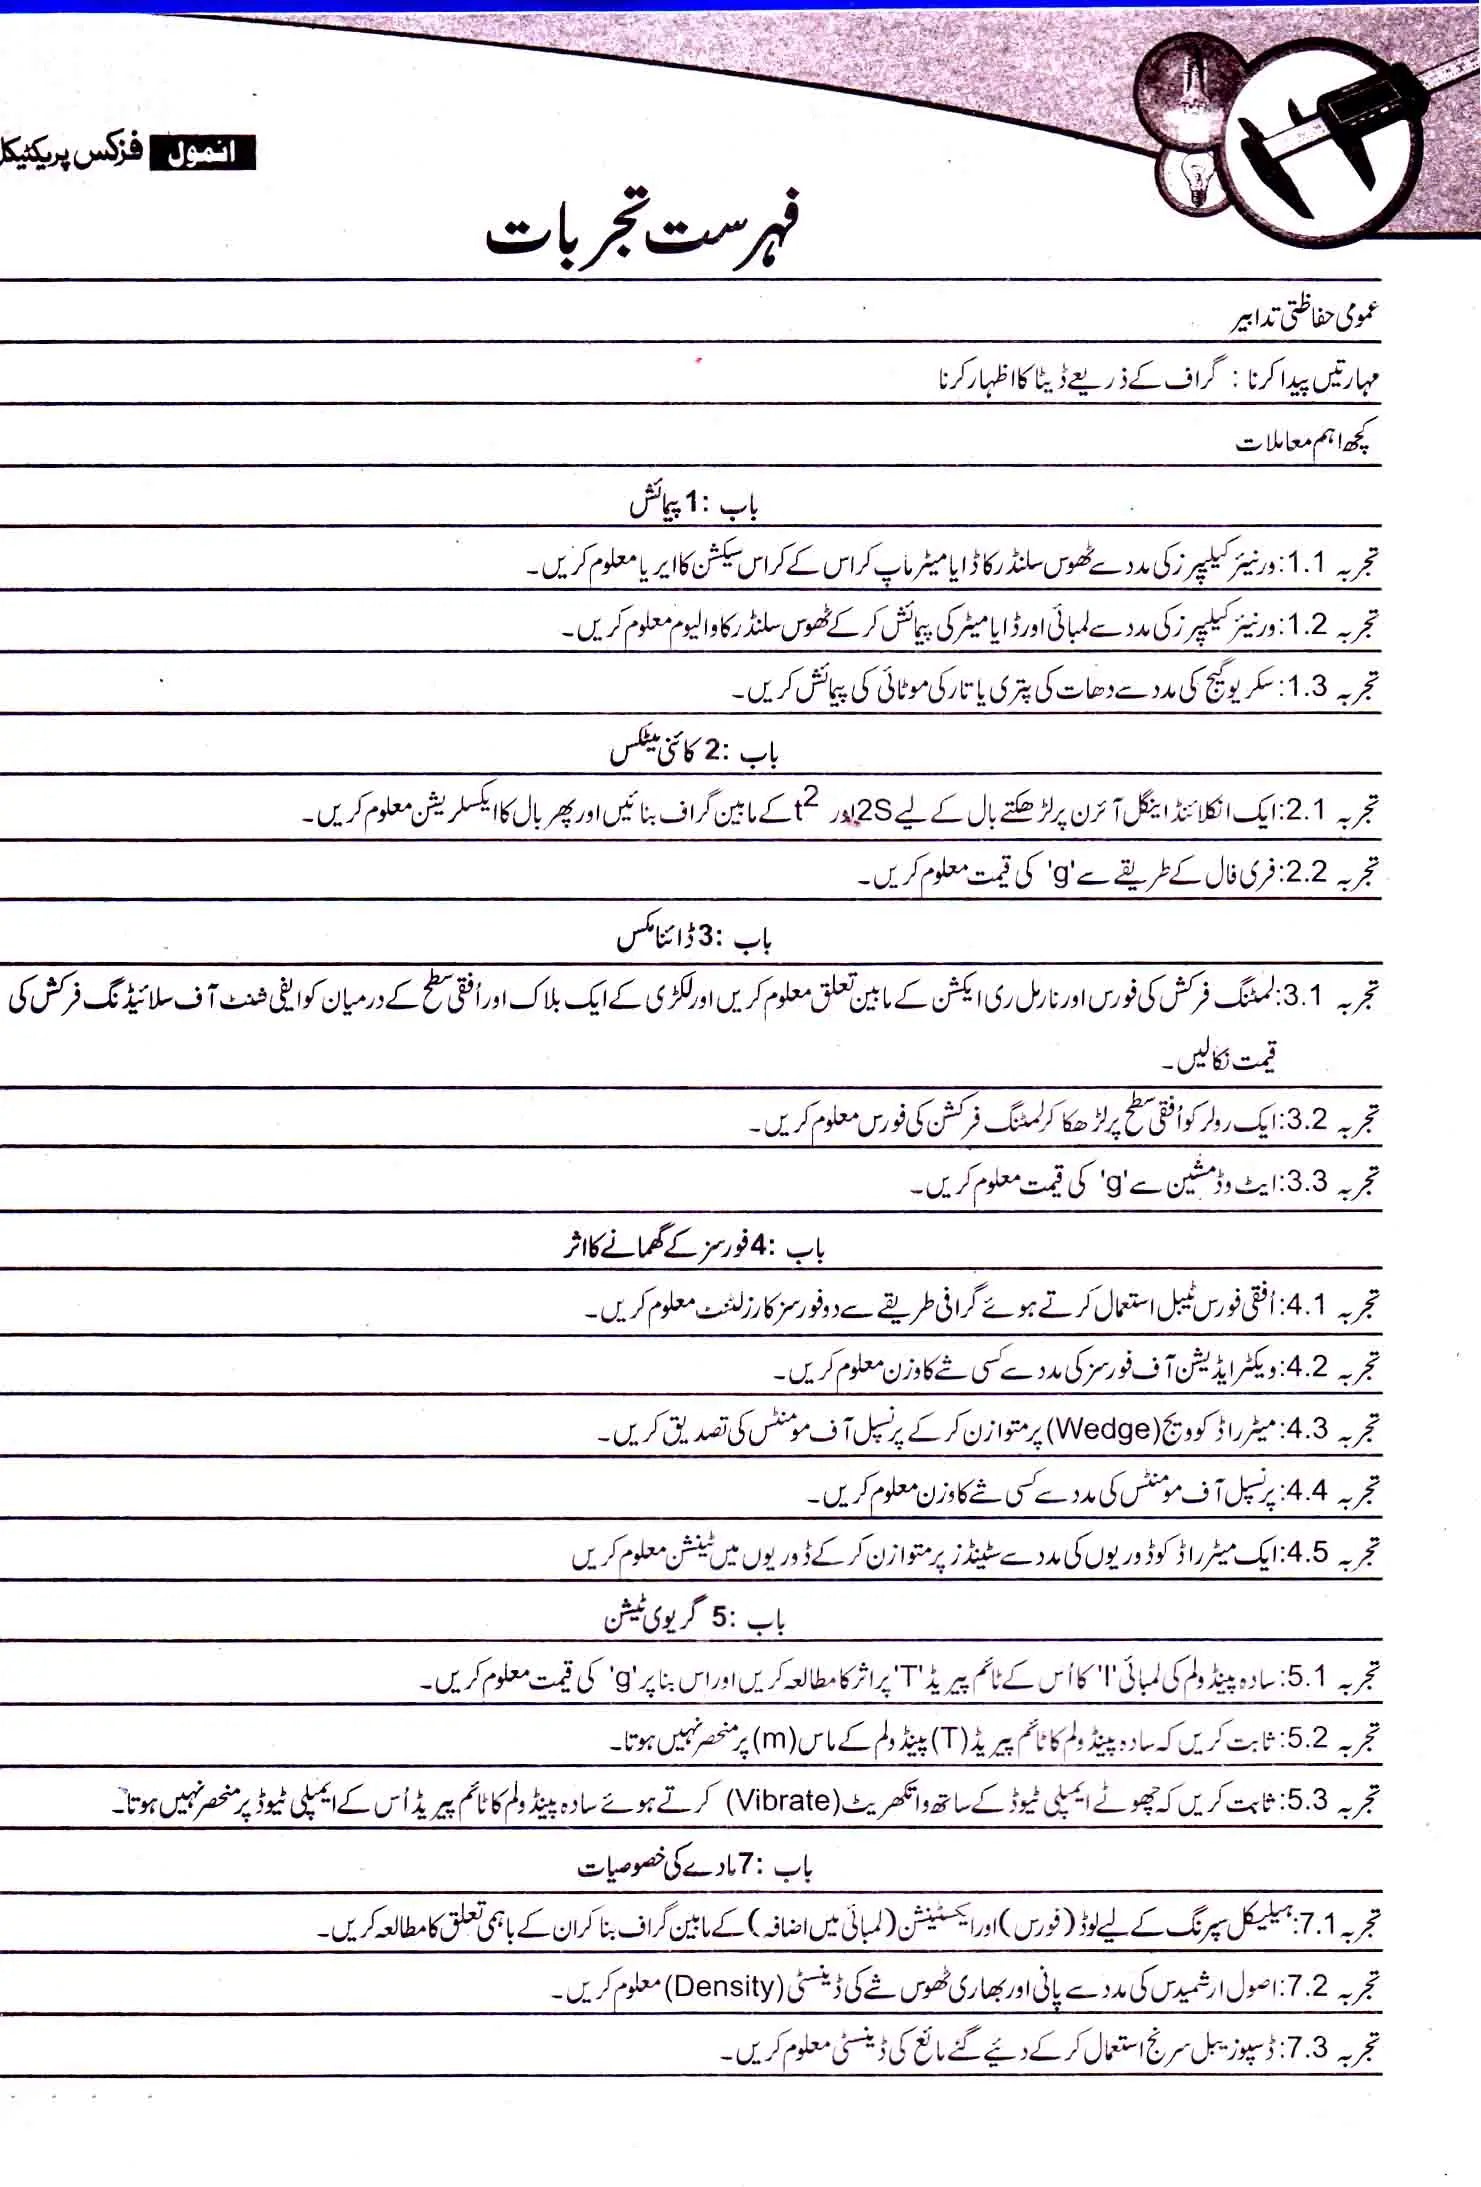 انمول فزکس پریکٹیکل
فہرست تجربات
عمومی حفاظتی تدابیر
مہارتیں پیدا کرنا : گراف کے ذریعے ڈیٹا کا اظہار کرنا
کچھ اہم معاملات
باب :1 پیمائش
تجربہ 1.1: ورنیئر کیلیپرز کی مدد سے ٹھوس سلنڈر کا ڈایا میٹر ماپ کر اس کے کراس سیکشن کا ایریا معلوم کریں۔
تجربہ 1.2: ورنیئر کیلیپرز کی مدد سے لمبائی اور ڈایا میٹر کی پیمائش کر کے ٹھوس سلنڈر کا والیوم معلوم کریں۔
تجربہ 1.3: سکریو گیج کی مدد سے دھات کی پتری یا تار کی موٹائی کی پیمائش کریں۔
باب :2 کائنی میٹکس
تجربہ 2.1: ایک انکلائنڈ اینگل آئرن پر لڑھکتے بال کے لیے 2S اور t² کے مابین گراف بنائیں اور پھر بال کا ایکسلریشن معلوم کریں۔
تجربہ 2.2: فری فال کے طریقے سے 'g' کی قیمت معلوم کریں۔
باب :3 ڈائنامکس
تجربہ 3.1: لمٹنگ فرکشن کی فورس اور نارمل ری ایکشن کے مابین تعلق معلوم کریں اور لکڑی کے ایک بلاک اور اُفقی سطح کے درمیان کوایفی شنٹ آف سلائیڈنگ فرکشن کی
قیمت نکالیں۔
تجربہ 3.2: ایک رولر کو اُفقی سطح پر لڑھکا کر لمٹنگ فرکشن کی فورس معلوم کریں۔
تجربہ 3.3: ایٹ وڈ مشین سے 'g' کی قیمت معلوم کریں۔
باب :4 فورسز کے گھمانے کا اثر
تجربہ 4.1: اُفقی فورس ٹیبل استعمال کرتے ہوئے گرافی طریقے سے دو فورسز کا رزلٹنٹ معلوم کریں۔
تجربہ 4.2: ویکٹر ایڈیشن آف فورسز کی مدد سے کسی شے کا وزن معلوم کریں۔
تجربہ 4.3: میٹر راڈ کو ویج (Wedge) پر متوازن کر کے پرنسپل آف مومنٹس کی تصدیق کریں۔
تجربہ 4.4: پرنسپل آف مومنٹس کی مدد سے کسی شے کا وزن معلوم کریں۔
تجربہ 4.5: ایک میٹر راڈ کو ڈوریوں کی مدد سے سٹینڈز پر متوازن کر کے ڈوریوں میں ٹینشن معلوم کریں
باب :5 گریوی ٹیشن
تجربہ 5.1: سادہ پینڈولم کی لمبائی 'l' کا اُس کے ٹائم پیریڈ 'T' پر اثر کا مطالعہ کریں اور اس بنا پر 'g' کی قیمت معلوم کریں۔
تجربہ 5.2: ثابت کریں کہ سادہ پینڈولم کا ٹائم پیریڈ (T) پینڈولم کے ماس (m) پر منحصر نہیں ہوتا۔
تجربہ 5.3: ثابت کریں کہ چھوٹے ایمپلی ٹیوڈ کے ساتھ وائبریٹ (Vibrate) کرتے ہوئے سادہ پینڈولم کا ٹائم پیریڈ اُس کے ایمپلی ٹیوڈ پر منحصر نہیں ہوتا۔
باب :7 مادے کی خصوصیات
تجربہ 7.1: ہیلیکل سپرنگ کے لیے لوڈ (فورس) اور ایکسٹینشن (لمبائی میں اضافہ) کے مابین گراف بنا کر ان کے باہمی تعلق کا مطالعہ کریں۔
تجربہ 7.2: اصول ارشمیدس کی مدد سے پانی اور بھاری ٹھوس شے کی ڈینسٹی (Density) معلوم کریں۔
تجربہ 7.3: ڈسپوزیبل سرنج استعمال کر کے دیئے گئے مائع کی ڈینسٹی معلوم کریں۔